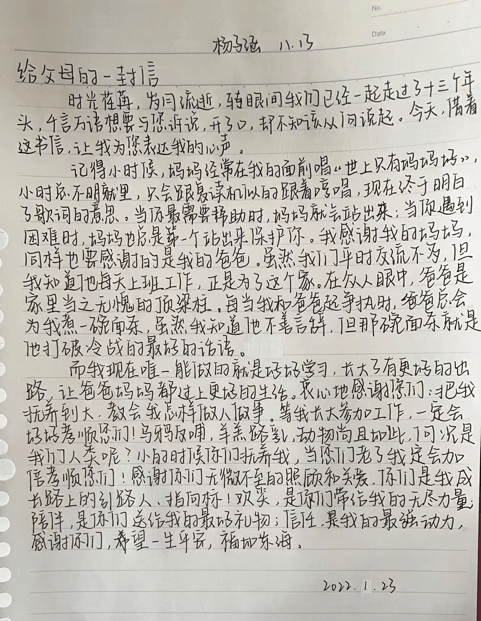 No.
Date
杨子涵 八.13
给父母的一封信
时光荏苒，岁月流逝，转眼间我们已经一起走过了十三个年
头，千言万语想要与您诉说，开了口，却不知该从何说起。今天，借着
这书信，让我为您表达我的心声。
记得小时候，妈妈经常在我的面前唱《世上只有妈妈好》，
小时候总不明就里，只会跟复读机似的跟着哼唱，现在终于明白
了歌词的意思、当你最需要帮助时，妈妈就会站出来；当你遇到
困难时，妈妈也总是第一个站出来保护你。我感谢我的妈妈，
同样也要感谢的是我的爸爸。虽然我们平时交流不多，但
我知道他每天上班工作，正是为了这个家。在众人眼中，爸爸是
家里当之无愧的顶梁柱。每当我和爸爸起争执时，爸爸总会
为我煮一碗面条，虽然我知道他不善言辞，但那碗面条就是
他打破冷战的最好的话语。
而我现在唯一能做的就是好好学习，长大了有更好的出
路，让爸爸妈妈都过上更好的生活。衷心地感谢您们：把我
抚养到大，教会我怎样做人做事。等我长大参加工作，一定会
好好孝顺您们！乌鸦反哺，羊羔跪乳，动物尚且如此，何况是
我们人类呢？小的时候你们抚养我，当您们老了我定会加
倍孝顺您们！感谢你们无微不至的照顾和关爱，你们是我成
长路上的引路人、指向标！欢笑，是你们带给我的无尽力量
陪伴，是你们送给我的最好礼物；信任，是我的最强动力，
感谢你们，希望一生平安，福如东海。
2022.1.23